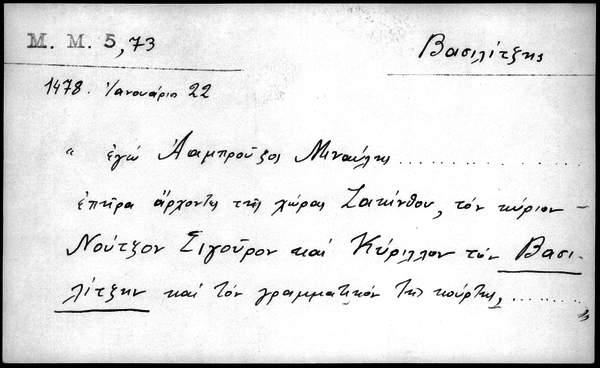 M. M. 5,73
Βασιλίτζης
1478. Ἰανουάριο 22
" ἐγώ Λαμπροῦζος Μινάλης ............
ἐπῆρα ἄρχοντες τῆς χώρας Ζακίνθου, τόν κύριον
Νούτζον Σιγοῦρον καί Κύριλλον τόν Βασι-
λίτζην καί τόν γραμματικόν τῆς κούρτης, ........ "